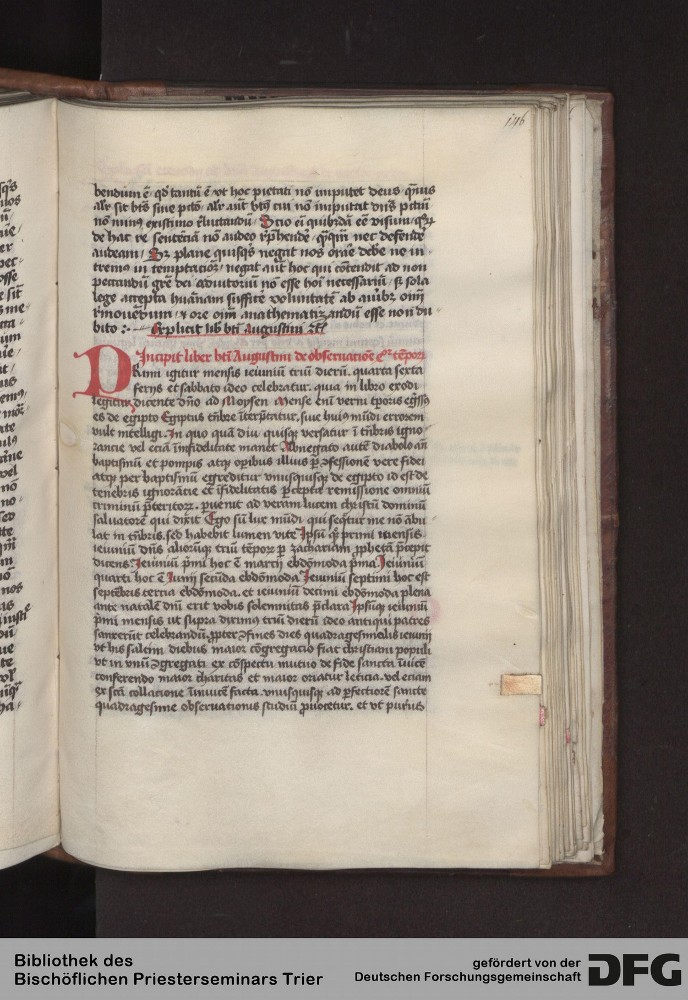 146
bendium ē · qd tantū ē vt hoc pietati nō imputet deus · qmuis
alr sit btūs sine pctō · alr aūt btūs cui nō imputat dns pctm̄
nō nimis existimo rluctandū · Scio eī quibusdā eē visum · qrū
de hac re sentēciā nō audeo rphende · qmqm nec defende
audeam · Sz plane quisqs negat nos orare debe ne in-
tremus in temptacionē · negat aūt hoc qui cōtendit ad non
peccandū grē dei adiutoriū nō esse hoi necessariū · sz sola
lege accepta humanam sufficere voluntatē ab auribz oim̄
rmouendum · & ore oim anathematizandū esse non du
bito :· Explicit lib bti Augustini
Incipit liber bti Augustini de obseruacione tēpor
PRimi igitur mensis ieiuniū triū dierū · quarta sexta
ferys et sabbato ideo celebratur · quia in libro exodi
legitur dicente dno ad Moysen Mense enī verni tporis egssi
es de egipto Egiptus tnbre īterptatur · siue huius mūdi errorem
vult intelligi · In quo quā diu quisqz versatur ī tnbris igno-
rancie vel eciā infidelitate manet Abnegato autē diabolo an̄
baptismū et pompis atqz opibus illius p 9fessionē vere fidei
atqz per baptismū egreditur vnusquisqz de egipto id est de
tenebris ignorācie et ifidelitatis pcepta remissione omniū
criminū pteritorz · puenit ad veram lucem christū dominū
saluatorē qui dixit Ego sū lux mūdi qui seqtur me nō abu
lat in tnbris · sed habebit lumen vite Ipsū qz primi mensis
ieiuniū dns aliorūqz triū tēpor p zachariam pphetā pcepit
dicens · Ieiuniū pmi hoc ē marcij ebdomoda pma · Ieiuniū
quarti hoc ē Iunij secūda ebdomoda Ieiuniū septimi hoc est
septēbris tercia ebdomoda · et ieiuniū decimi ebdomoda plena
ante natalē dnī erit vobis solemnitas pclara Ipsūqz ieiuniū
pmi mensis ut supra diximus triū dierū ideo antiqui patres
sanxerūt celebrandū · ppter 9fines dies quadragesimalis ieiunij
vt his saltem diebus maior cōgregacio fiat christiani populi
vt in vnū 9gregati ex cōspectu mutuo de fide sancta īuicē
conferendo maior charitas et maior oriatur leticia · vel eciam
ex scā collacione īnuicē facta · vnusquisqz ad pfectiorē sancte
quadragesime obseruacionis studiū puocetur · et vt purius
Bibliothek des
Bischöflichen Priesterseminars Trier
gefördert von der
Deutschen Forschungsgemeinschaft
DFG